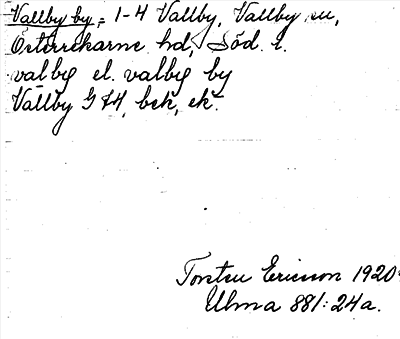 Vallby by = 1-4 Vallby, Vallby sn,
Österrekarne hd, Söd. l.
valbg el. valbg by
Vallby G 44, bek, ek.
Torsten Ericsson 1920
Ulma 881:24a.